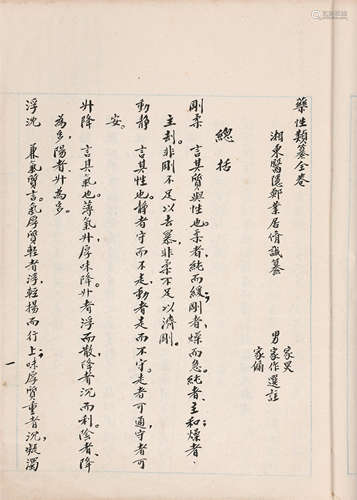 藥性類纂全卷
湘東醫隱鄒業居情誠纂
男 家作選註
總括
剛柔 言其質與性也。柔者純而緩,剛者燥而急。純者、主和;燥者、
主剋。非剛不足以去暴,非柔不足以濟剛。
動靜 言其性也。靜者守而不走,動者走而不守。走者可通,守者可
安。
升降 言其氣也。薄氣升,厚味降。升者浮而散,降者沉而利。陰者、降
為多,陽者、升為多。
浮沈 兼氣質言。氣厚質輕者浮,輕揚而行上;味厚質重者沉,凝濁
一